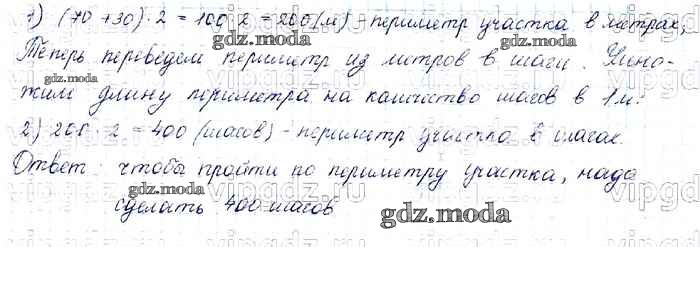 1) (70 +30)·2 = 100·2 = 200(м) - периметр участка в метрах,
gdz.moda
Теперь переведем периметр из метров в шаги. Умно-
gdz.moda
жим длину периметра на количество шагов в 1 м:
2) 200 · 2 = 400 (шагов) - периметр участка в шагах.
Ответ: чтобы пройти по периметру участка, надо
gdz.moda
gdz.moda
сделать 400 шагов
gdz.moda